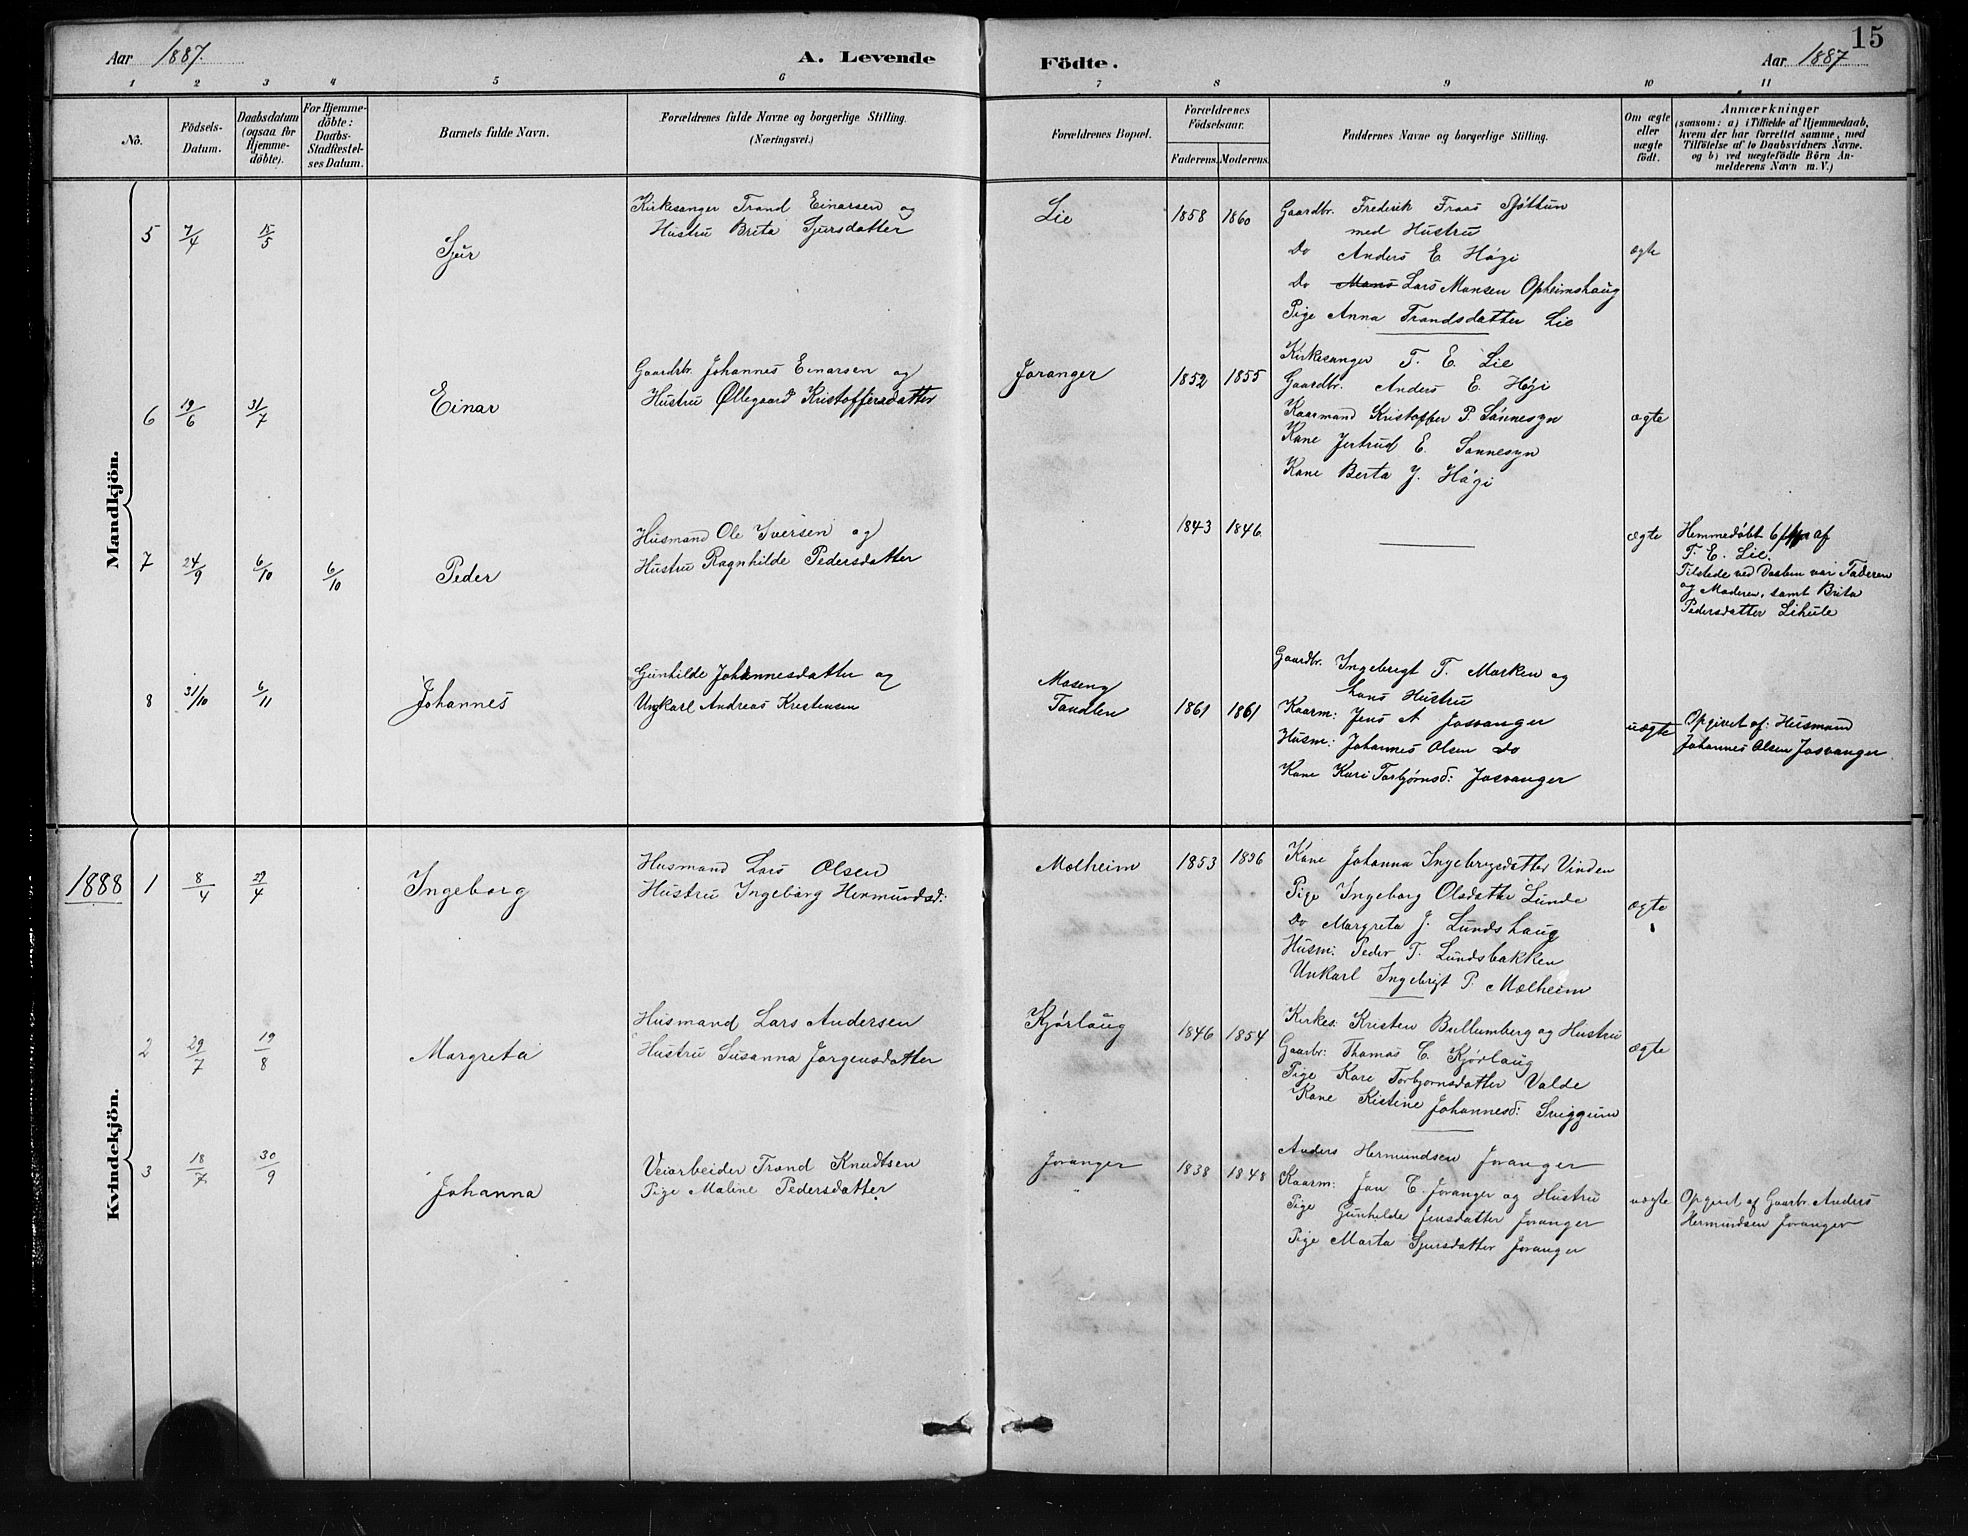 15
Aar 1887.
A. Levende
Födte.
Aar 1887
1 2 3 4 5 6 7 8 9 10 11
No.
Födsels-
Datum.
Daabsdatum
(ogsaa for
Hjemme-
döbte).
For Hjemme-
döbte:
Daabs-
Stadfæstel-
ses Datum.
Barnets fulde Navn.
Forældrenes fulde Navne og borgerlige Stilling.
(Næringsvei.)
Forældrenes Bopæl.
Forældrenes
Födselsaar.
Faderens. Moderens.
Faddernes Navne og borgerlige Stilling.
Om ægte
eller
uægte
födt.
Anmærkninger
(saasom: a) i Tilfælde af Hjemmedaab,
hvem der har forrettet samme, med
Tilföielse af to Daabsvidners Navne.
og b) ved uægtefödte Börn An-
melderens Navn m. V.)
Mandkjön.
5 7/4 15/5
Sjur
Kirkesanger Trand Einarsen og
Hustru Brita Sjursdatter
Lie
1858 1860
Gaardbr. Frederik Fraas Sjøttun
med Hustru
Do Anders E. Høgi
Do Mons Lars Monsen Opheimshaug
Pige Anna Trandsdatter Lie
ægte
6 19/6 31/7
Einar
Gaardbr. Johannes Einarsen og
Hustru Øllegaard Kristoffersdatter
Joranger
1852 1855
Kirkesanger T. E. Lie
Gaardbr. Anders E. Høgi
Kaarmand Kristoffer P. Sønnesyn
Kone Jertrud E. Sønnesyn
Kone Berta J. Høgi
ægte
7 24/9 6/10 6/10
Peder
Husmand Ole Iversen og
Hustru Ragnhilde Pedersdatter
1843 1846
ægte
Hemmedøbt af
T. E. Lie.
Tilstede ved Daaben var Faderen
og Moderen, samt Brita
Pedersdatter Lihule
8 31/10 6/11
Johannes
Gunhilde Johannesdatter og
Ungkarl Andreas Kristensen
Moseng
Tandlen
1861 1861
Gaardbr. Ingebrigt T. Marken og
hans Hustru
Kaarm: Jens A Josvanger
Husm: Johannes Olsen Do
Kone Kari Torbjørnsd: Josvanger
uægte
Opgivet af: Husmand
Johannes Olsen Josvanger
Kvindekjön.
1888 1 8/4 29/4
Ingeborg
Husmand Lars Olsen
Hustru Ingeborg Hermundsd:
Molheim
1853 1856
Kone Johanna Ingebrigsdatter Vinden
Pige Ingeborg Olsdatter Lunde
Do Margreta J. Lundshaug
Husm: Peder T. Lundsbakken
Unkarl Ingebrigt P. Molheim
ægte
2 29/7 19/8
Margreta
Husmand Lars Andersen
Hustru Susanna Jørgensdatter
Kjørlaug
1846 1854
Kirkes: Kristen Bullumberg og Hustru
Gaarbr: Thomas C. Kjørlaug
Pige Kari Torbjornsdatter Valde
Kone Kistine Johannesd: Sviggum
ægte
3 18/7 30/9
Johanna
Veiarbeider Trand Knudtsen
Pige Maline Pedersdatter
Joranger
"
1838 1848
Anders Hermundsen Joranger
Kaarm: Jon C. Joranger og Hustru
Pige Gunhilde Jensdatter Joranger
Pige Marta Sjursdatter Joranger
uægte
Opgivet af Gaarbr. Anders
Hermundsen Joranger